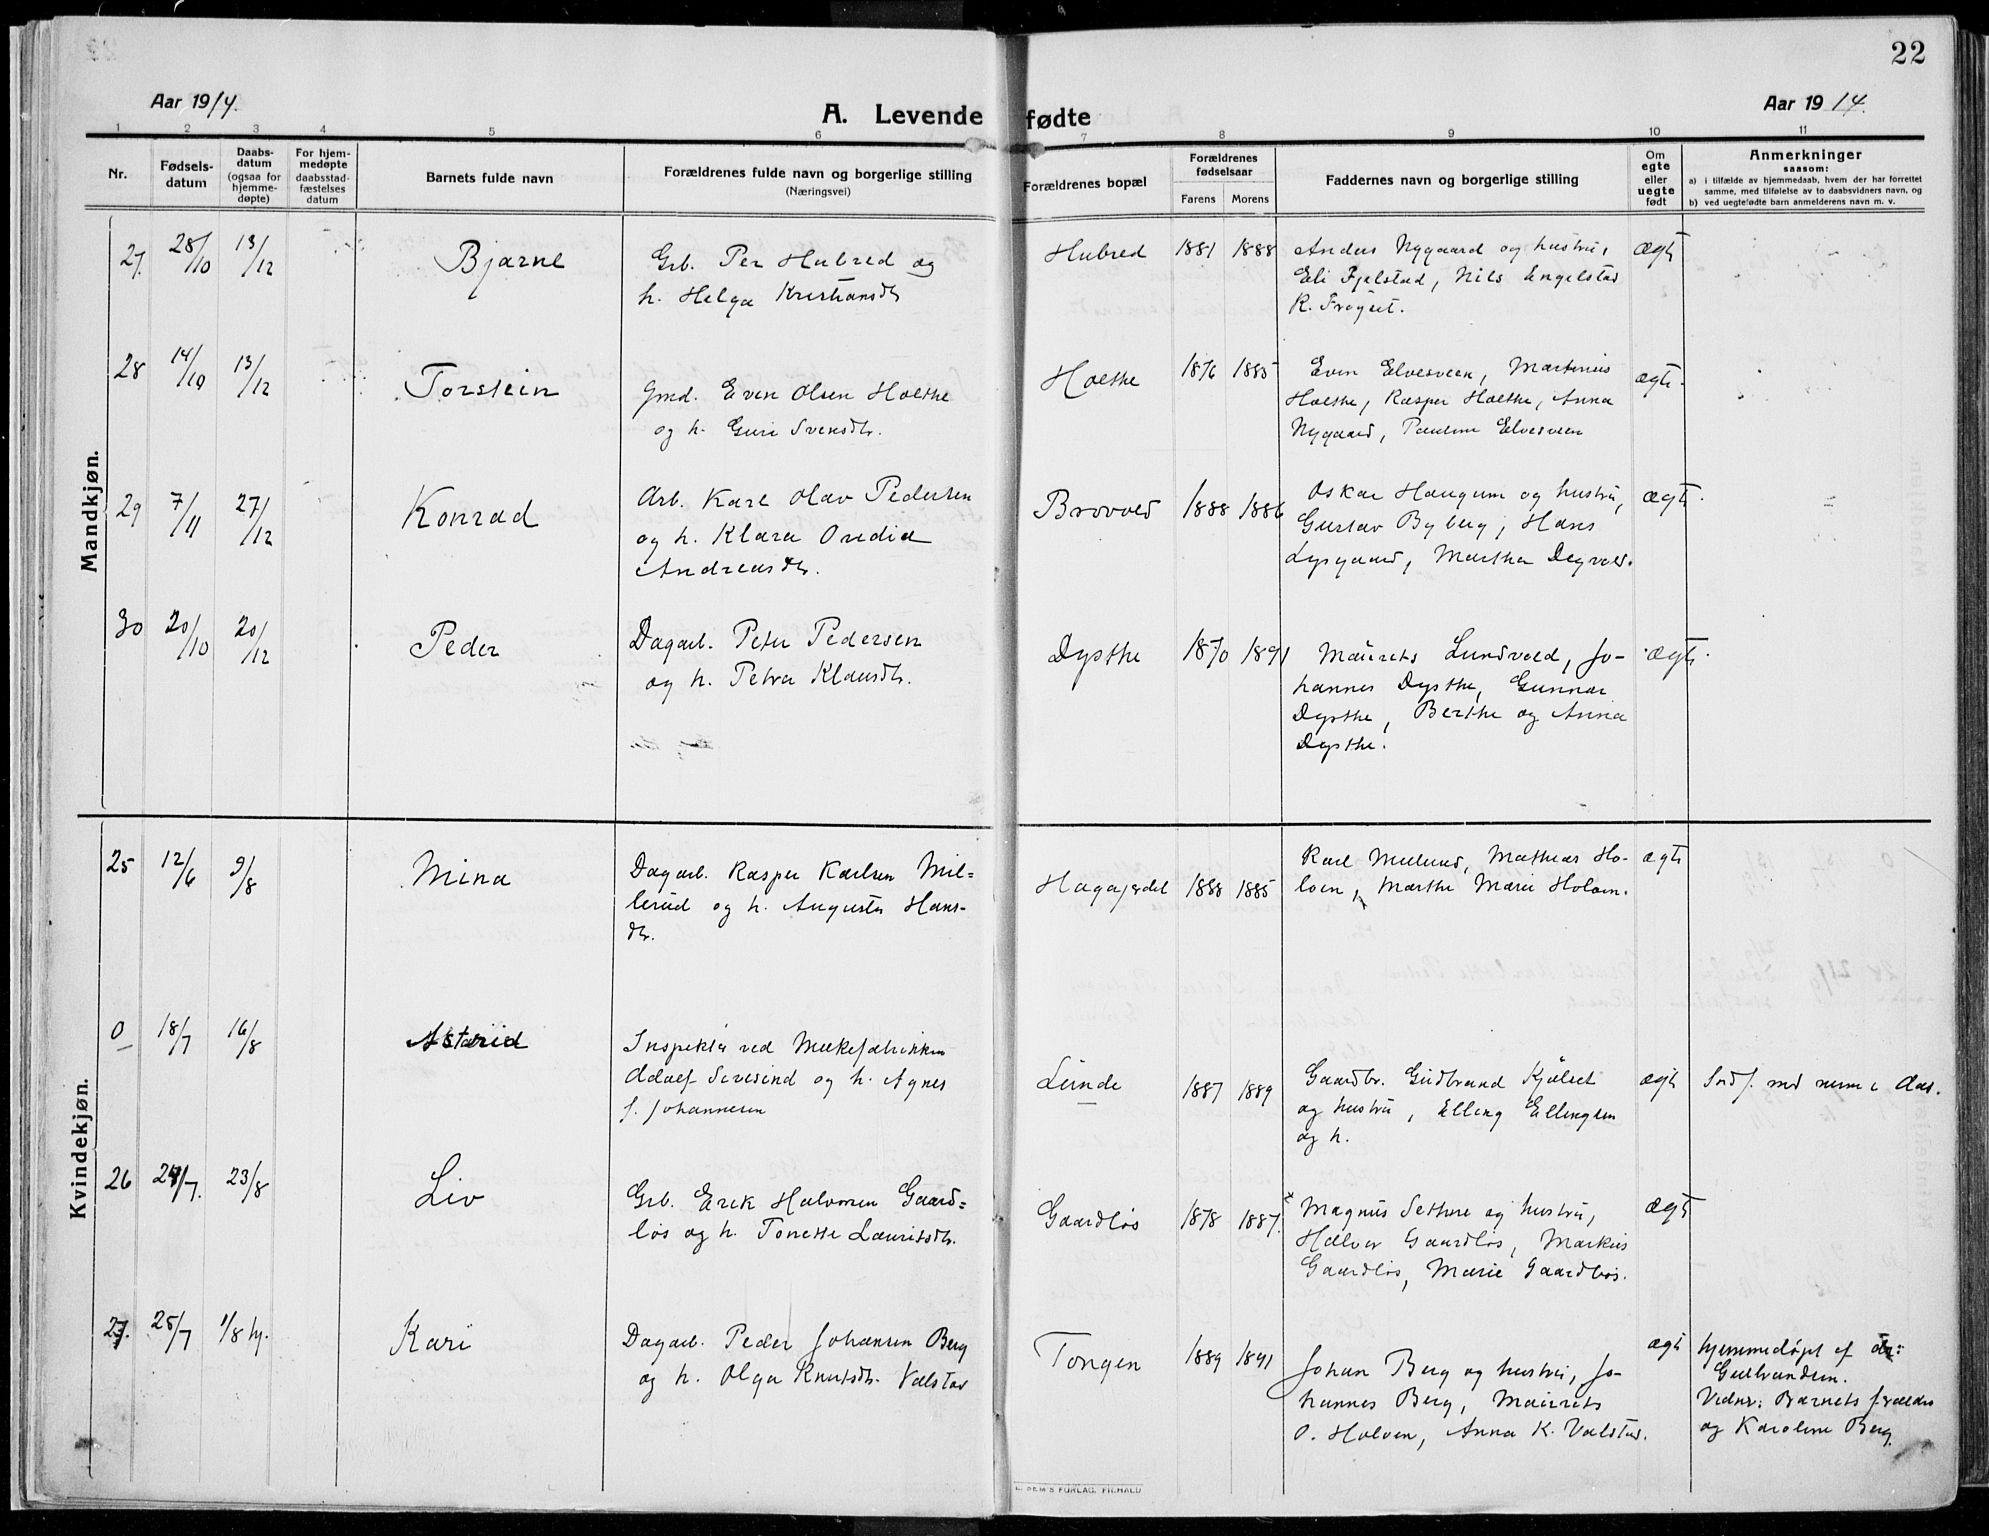 22
Aar 1914.
A. Levende fødte
Aar 1914.
1 2 3 4 5 6 7 8 9 10 11
Nr.
Fødsels-
datum
Daabs-
datum
(ogsaa for
hjemme-
døpte)
For hjem-
medøpte
daabsstad-
fæstelses
datum
Barnets fulde navn
Forældrenes fulde navn og borgerlige stilling
(Næringsvei)
Forældrenes bopæl
Forældrenes
fødselsaar
Farens Morens
Faddernes navn og borgerlige stilling
Om
egte
eller
uegte
født
Anmerkninger
saasom:
a) i tilfælde av hjemmedaab, hvem der har forrettet
samme, med tilføielse av to daabsvidners navn, og
b) ved uegtefødte barn anmelderens navn m. v.
Mandkjøn.
27. 28/10 13/12 Bjarne
Grb. Per Hubred og
h. Helga Kristiansdtr
Hubred 1881 1888
Anders Nygaard og hustru,
Eli Fjelstad, Nils Engelstad
R.
ægte
28 14/10 13/12 Torstein
Gmd. Even Olsen Holthe
og h. Guri Svensdtr.
Holthe 1876 1885
Even Elvesveen, Martinius
Holthe, Kasper Holthe, Anna
Nygaard, Pauline Elvesveen
ægte.
29 7/11 27/12 Konrad
Arb. Karl Olav Pedersen
og h. Klara Oredia
Andreasdtr.
Brovold 1888 1886
Oskar Haugum og hustru,
Gustav Byberg, Hans
Lysgaard, Marthe Dyrvold.
ægte.
30 20/10 20/12 Peder
Dagarb. Peter Pedersen
og h. Petra Klausdtr.
Dysthe 1870 1891
Maurits Lundvold, Jo-
hannes Dysthe, Gunnar
Dysthe, Berthe og Anna
Dysthe.
ægte.
Kvindekjøn.
25 12/6 9/8 Mina
Dagarb. Kasper Karlsen Mil-
lerud og h. Augusta Hans-
dtr.
Hagajordet 1888 1885
Karl Melund, Mathias Ho-
loen, Marthe Marie Holoen.
ægte
0 18/7 16/8 Astrid
Inspektør ved Melkefabrikken
Adolf Sivesind og h. Agnes
f. Johannesen
Lunde 1887 1889
Gaardbr. Gudbrand Kjølset
og hustru, Elling Ellingsen
og h.
ægte
Indf. med num i Aas.
26 24/7. 23/8 Liv
Grb. Erik Halvorsen Gaard-
løs og h. Tonette Lauritsdtr.
Gaardløs 1878 1887.
Magnus Sethne og hustru,
Halvor Gaardløs, Markus
Gaardløs, Marie Gaardløs.
ægte
27. 25/7 1/8 hj. Kari
Dagarb. Peder Johansen Berg
og h. Olga Knutsdtr. Valstad
Tongen 1889 1891
Johan Berg og hustru, Jo-
hannes Berg, Maurits
O. Holven, Anna K. Valstad.
ægte
hjemmedøpt af dr:
Gulbrandsen.
Vidner: Barnets forældre
og Karoline Berg.